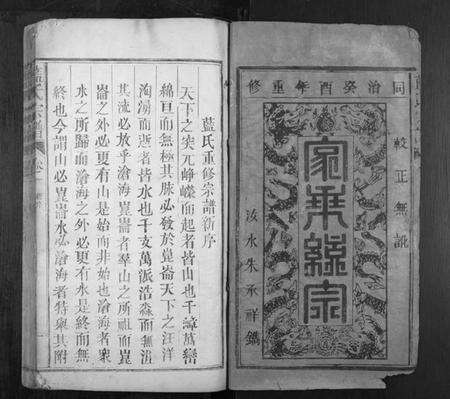 同治癸酉年重修
較正無訛
家乘綿宗
汝水朱承祥鐫
藍氏重修宗譜新序
天下之突兀崢嶸而起者皆山也千巒萬巒
綿亘而無極其脉必發於崑崙天下之汪洋
洶湧而逝者皆水也千支萬派浩淼而無涯
其流必放乎滄海崑崙者羣山之所祖而崑
崙之外必更有山是始而非始也滄海者衆
水之所歸而滄海之外必更有水是終而無
終也今謂山必崑崙水必滄海者特舉其附